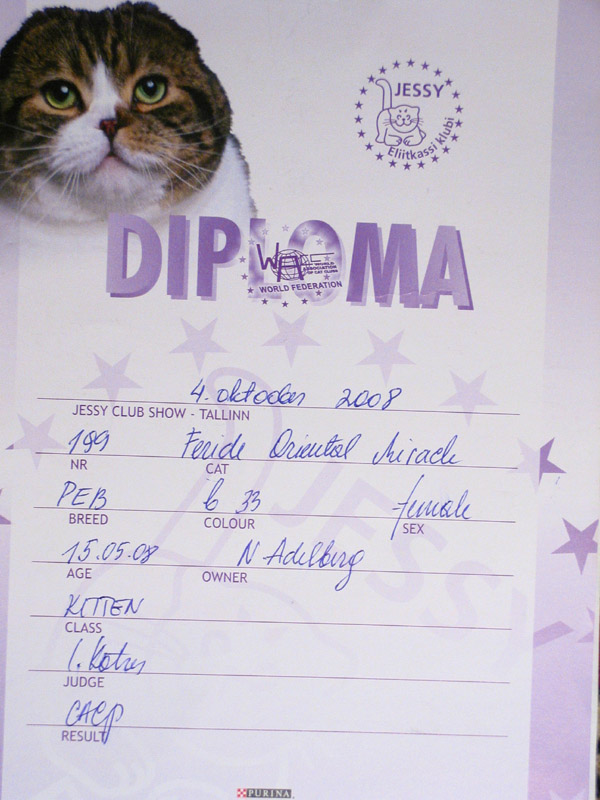 JESSY
Eliitkassi klubi
DIPLOMA
WORLD
ASSOCIATION
OF CAT CLUBS
WORLD FEDERATION
4. oktoober 2008
JESSY CLUB SHOW - TALLINN
199 Feride Oriental Miracle
NR CAT
PEB b 33 female
BREED COLOUR SEX
15.05.08 N Adelberg
AGE OWNER
KITTEN
CLASS
JUDGE
CACP
RESULT
JESSY
PURINA